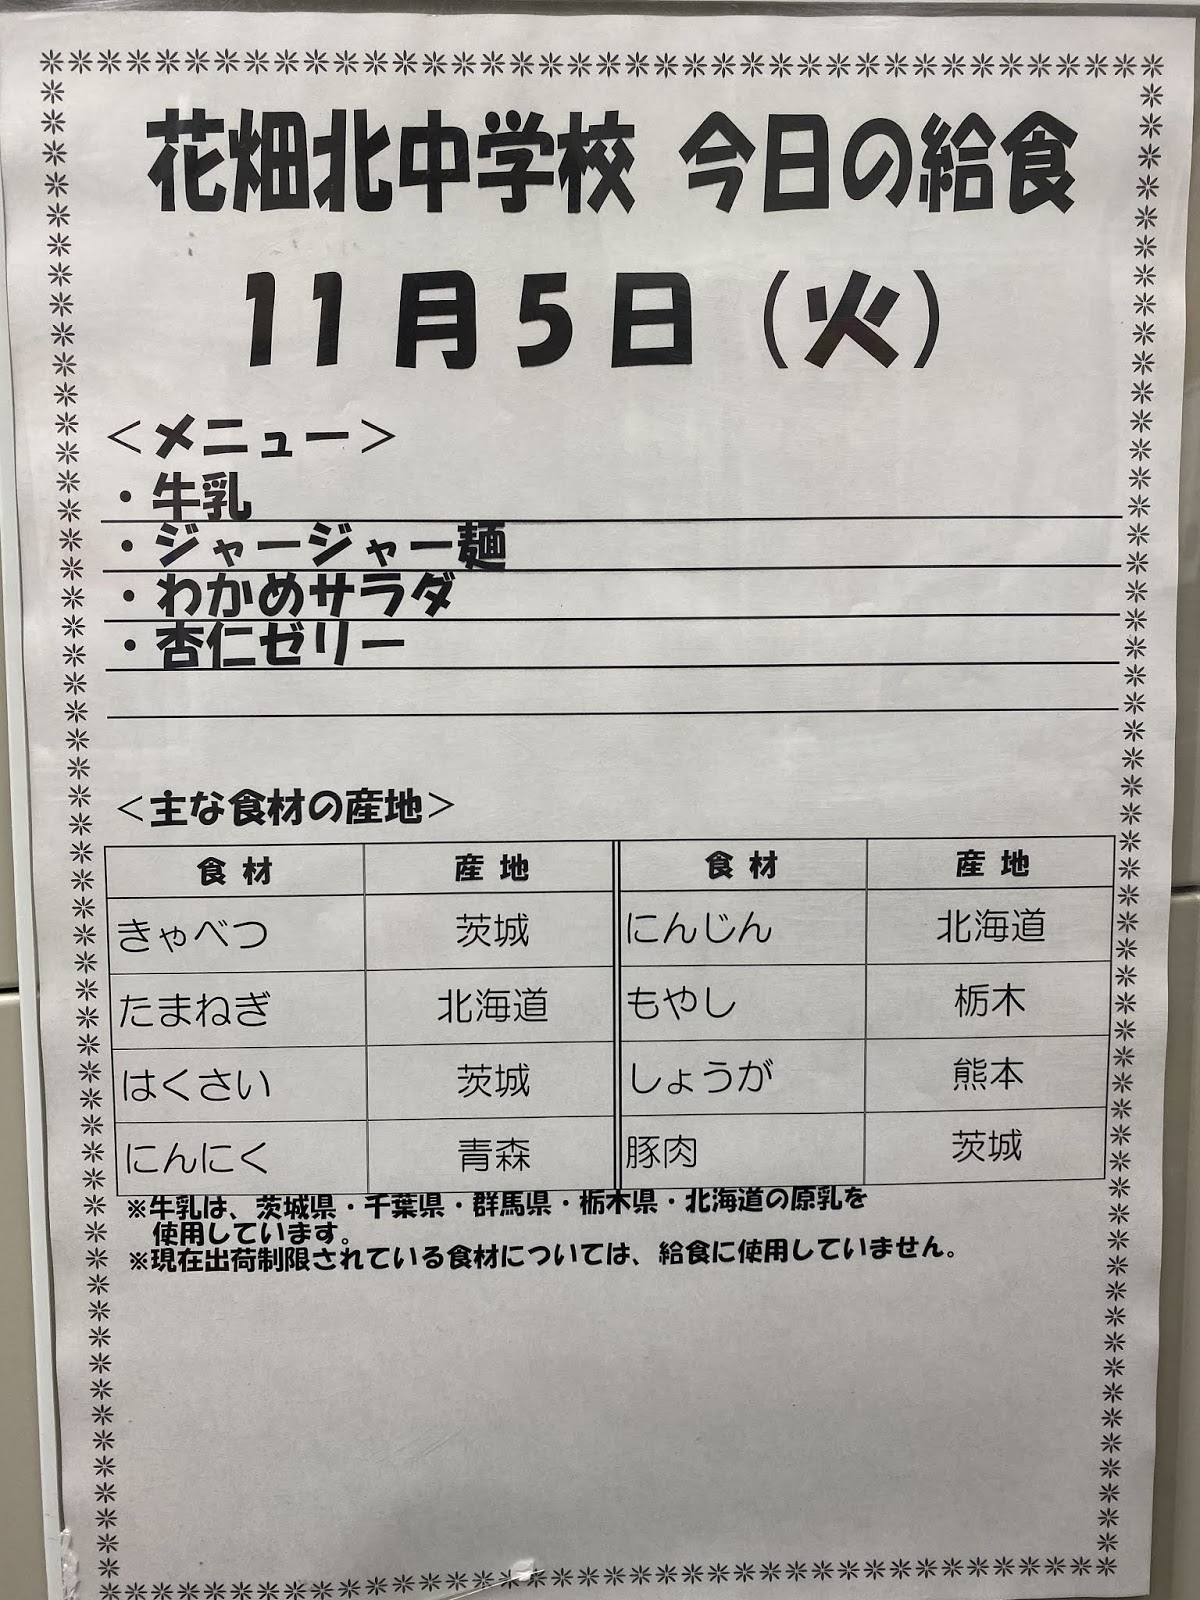 花畑北中学校 今日の給食
11月5日（火）
＜メニュー＞
・牛乳
・ジャージャー麺
・わかめサラダ
・杏仁ゼリー
＜主な食材の産地＞
食材 産地 食材 産地
きゃべつ 茨城 にんじん 北海道
たまねぎ 北海道 もやし 栃木
はくさい 茨城 しょうが 熊本
にんにく 青森 豚肉 茨城
※牛乳は、茨城県・千葉県・群馬県・栃木県・北海道の原乳を
使用しています。
※現在出荷制限されている食材については、給食に使用していません。